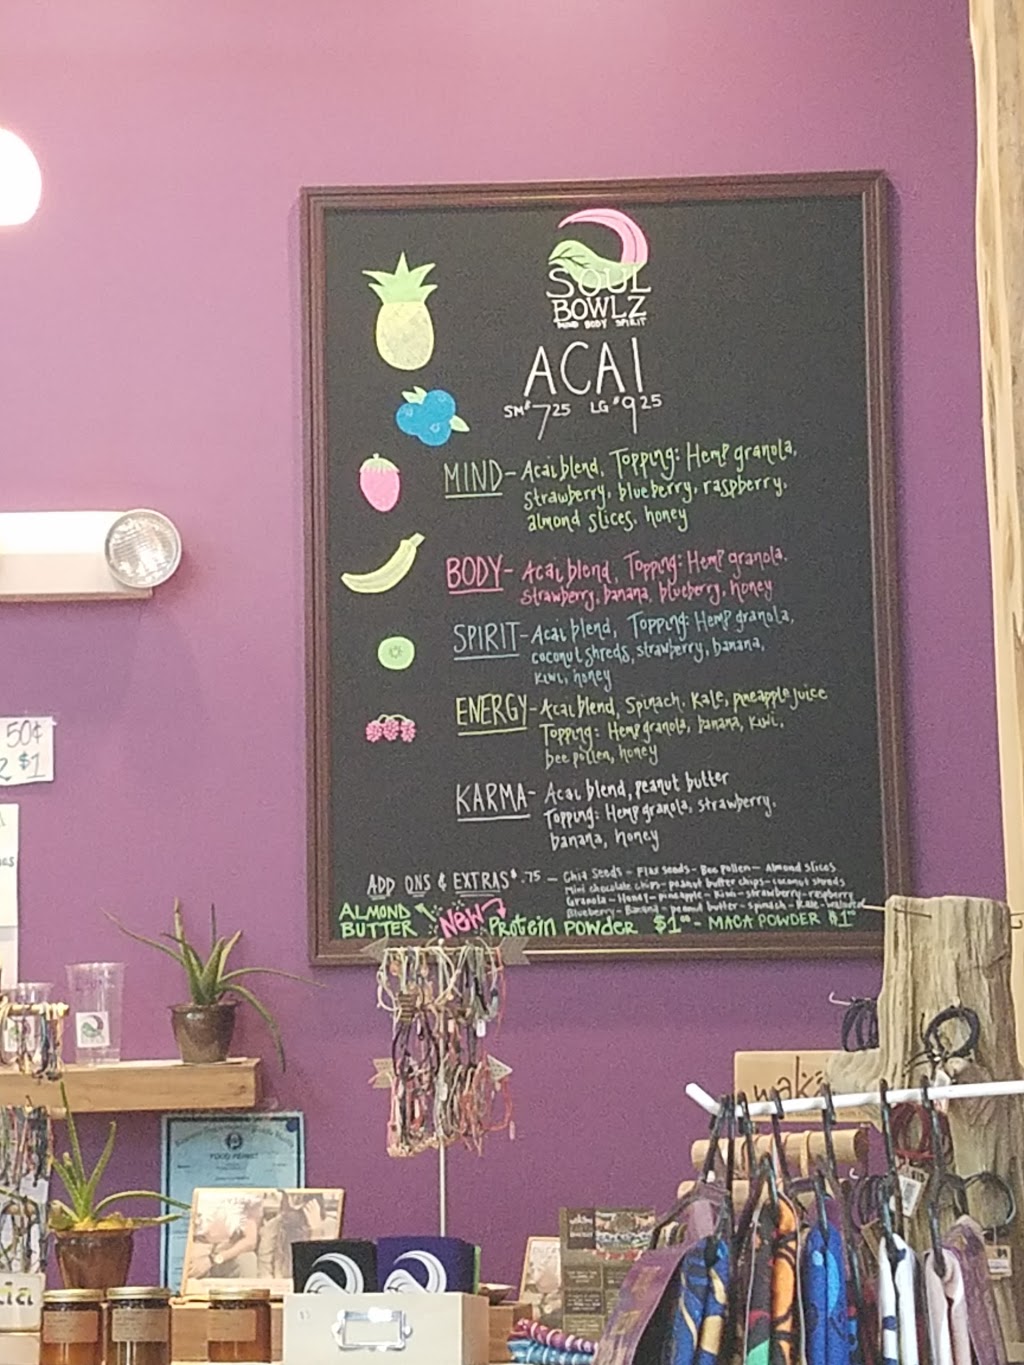 SOUL
BOWLZ
MIND BODY SPIRIT
ACAI
SM $7.25 LG $9.25
MIND - Acai blend, Topping: Hemp granola,
strawberry, blueberry, raspberry,
almond slices, honey
BODY - Acai blend, Topping: Hemp granola,
strawberry, banana, blueberry, honey
SPIRIT - Acai blend, Topping: Hemp granola,
coconut shreds, strawberry, banana,
kiwi, honey
ENERGY - Acai blend, Spinach, Kale, pineapple juice
Topping: Hemp granola, banana, kiwi,
bee pollen, honey
KARMA - Acai blend, peanut butter
Topping: Hemp granola, strawberry,
banana, honey
ADD ONS & EXTRAS $.75 - Chia Seeds - Flax Seeds - Bee Pollen - Almond Slices
Mini chocolate chips - peanut butter chips - coconut shreds
Granola - Honey - pineapple - Kiwi - strawberry - raspberry
Blueberry - Banana - peanut butter - spinach - Kale - walnuts
ALMOND
BUTTER NEW Protein Powder $1.00 - MACA POWDER $1.00
50¢
2 $1
FOOD PERMIT
wak